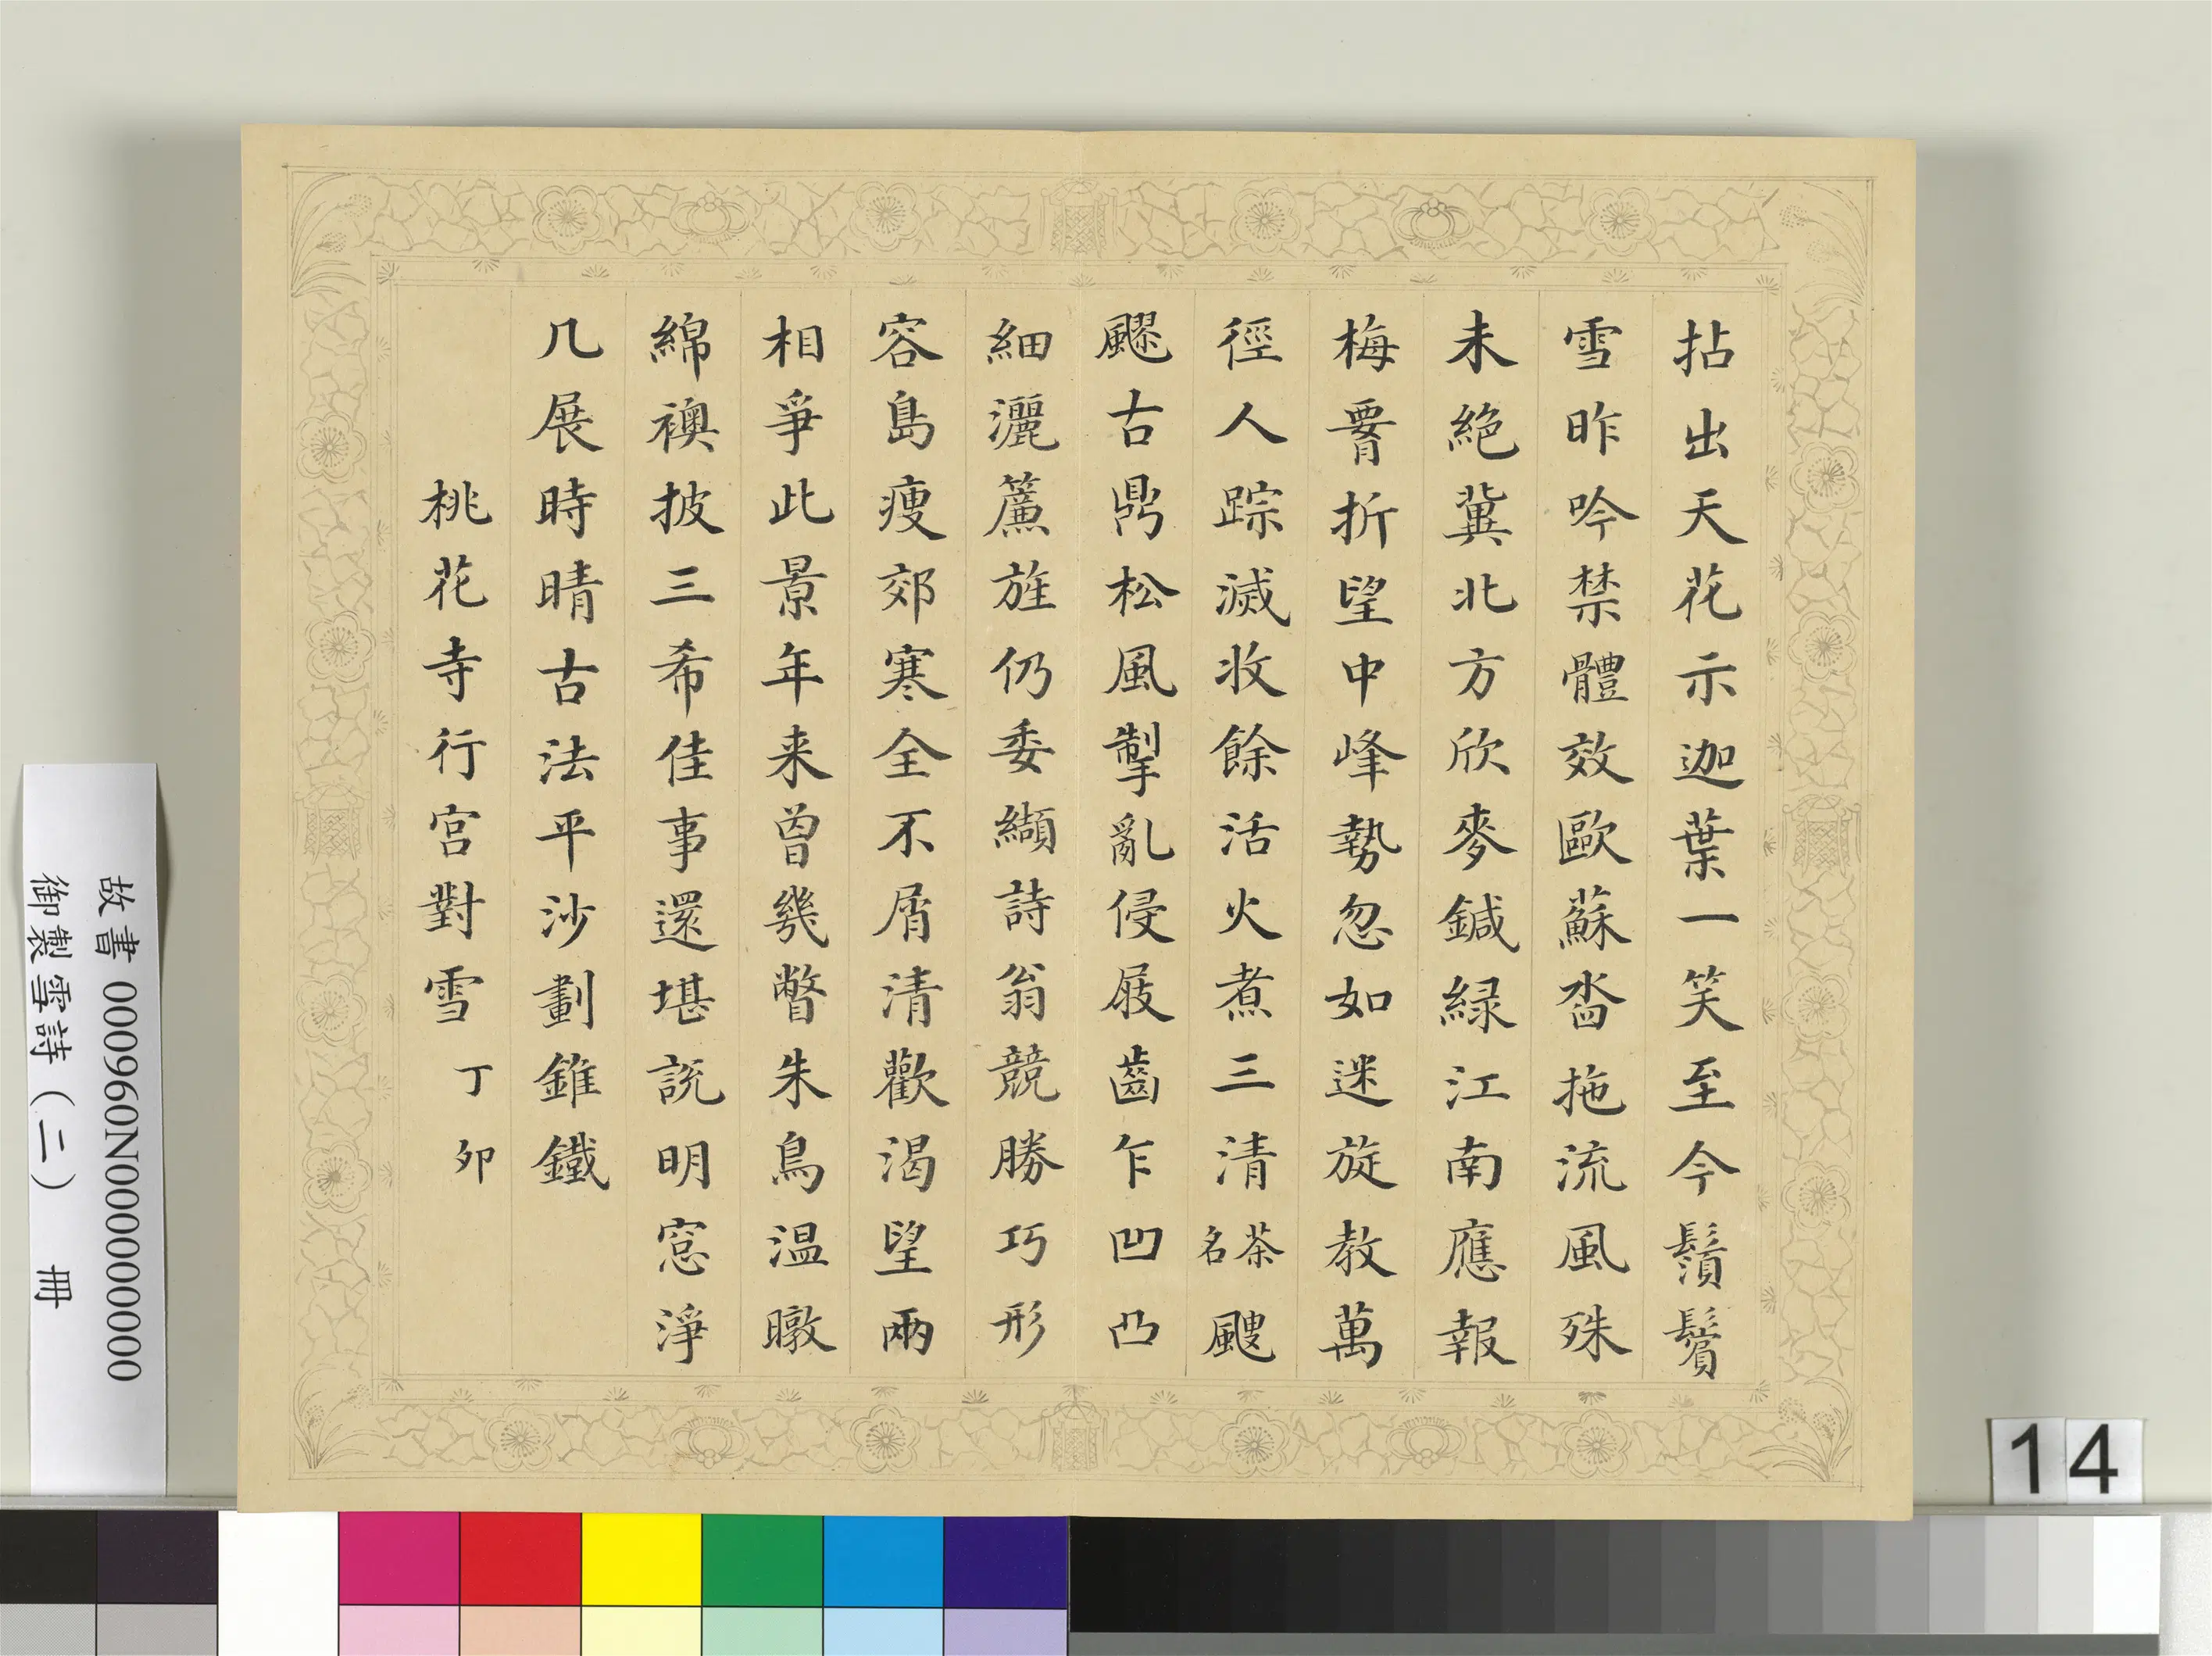 拈出天花示迦葉一笑至今鬚鬢
雪昨吟禁體效歐蘇沓拖流風殊
未絕冀北方欣麥鍼緑江南應報
梅膋折望中峰勢忽如迷旋教萬
徑人踪滅收餘活火煮三清茶名颼
飂古鼎松風掣亂侵屐齒乍凹凸
細灑簾旌仍委纈詩翁競勝巧形
容島瘦郊寒全不屑清歡渴望兩
相爭此景年来曾幾瞥朱鳥温暾
綿襖披三希佳事還堪説明窓淨
几展時晴古法平沙劃錐鐵
桃花寺行宮對雪 丁卯
故書 000960N000000000
御製雪詩(二) 冊
14